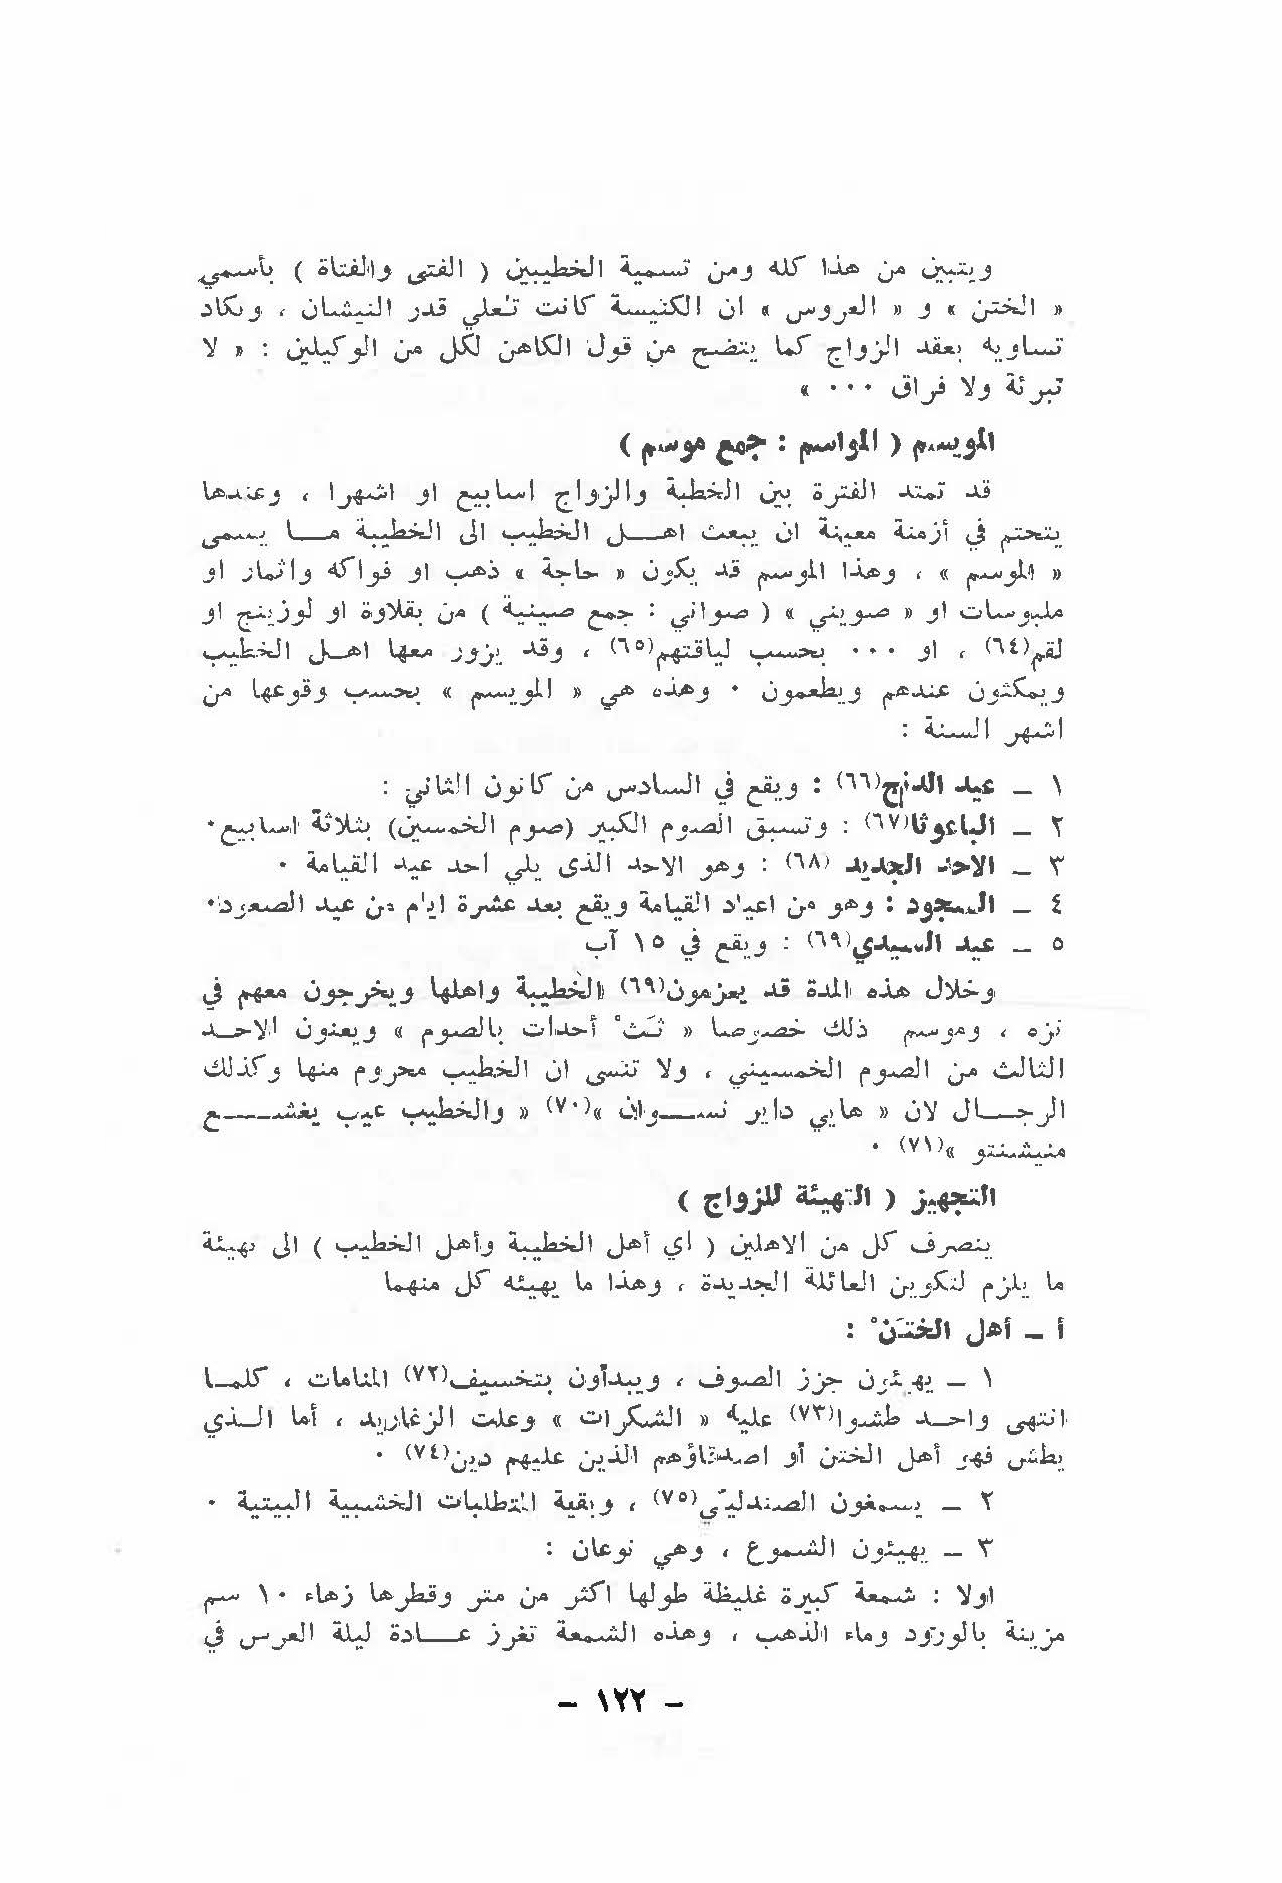 ويتبين من هذا كله ومن تسمية الخطيبين ( الفتى والفتاة ) بأسمي
« الختن » و « العروس » ان الكنيسة كانت تعلي قدر النيشان ، وتكاد
تساويه بعقد الزواج كما يتضح من قول الكاهن لكل من الوكيلين : « لا
تبرئة ولا فراق ٠٠٠ »
المويسم ( المواسم : جمع موسم )
قد تمتد الفترة بين الخطبة والزواج اسابيع او اشهرا ، وعندها
يتحتم في أزمنة معينة ان يبعث اهـل الخطيب الى الخطيبة مـا يسمى
« الموسم » ، وهذا الموسم قد يكون « حاجة » ذهب او فواكه واثمار او
ملبوسات او « صويني » ( صواني : جمع صينية ) من بقلاوة او لوزينج او
لقم(٦٤) ، او ٠٠٠ بحسب لياقتهم(٦٥) ، وقد يزور معها اهـل الخطيب
ويمكثون عندهم ويطعمون ٠ وهذه هي « المويسم » بحسب وقوعها من
اشهر السنة :
١ ـ عيد الدنح(٦٦) : ويقع في السادس من كانون الثاني :
٢ ـ الباعوثا(٦٧) : وتسبق الصوم الكبير (صوم الخمسين) بثلاثة اسابيع٠
٣ ـ الاحد الجديد (٦٨) : وهو الاحد الذى يلي احد عيد القيامة ٠
٤ ـ السجود : وهو من اعياد القيامة ويقع بعد عشرة ايام من عيد الصعود٠
٥ ـ عيد السيدي(٦٩) : ويقع في ١٥ آب
وخلال هذه المدة قد يعزمون(٦٩) الخطيبة واهلها ويخرجون معهم في
نزه ، وموسم ذلك خصوصا « ثَثْ أحدات بالصوم » ويعنون الاحـد
الثالث من الصوم الخمسيني ، ولا تنسى ان الخطيب محروم منها وكذلك
الرجـال لان « هايي داير نسـوان »(٧٠) « والخطيب عيب يغشـع
منيشنتو »(٧١) ٠
التجهيز ( التهيئة للزواج )
ينصرف كل من الاهلين ( اي أهل الخطيبة وأهل الخطيب ) الى تهيئة
ما يلزم لتكوين العائلة الجديدة ، وهذا ما يهيئه كل منهما
أ ـ أهل الختَنْ :
١ ـ يهيئون جزز الصوف ، ويبدأون بتخسيف(٧٢) المنامات ، كلمـا
انتهى واحـد طشوا(٧٣) عليه « الشكرات » وعلت الزغاريد ، أما الـذي
يطش فهو أهل الختن أو اصدقاؤهم الذين عليهم دين(٧٤) ٠
٢ ـ يسمغون الصندليّي(٧٥) ، وبقية المتطلبات الخشبية البيتية ٠
٣ ـ يهيئون الشموع ، وهي نوعان :
اولا : شمعة كبيرة غليظة طولها اكثر من متر وقطرها زهاء ١٠ سم
مزينة بالورود وماء الذهب ، وهذه الشمعة تغرز عـادة ليلة العرس في
ـ ١٢٢ ـ